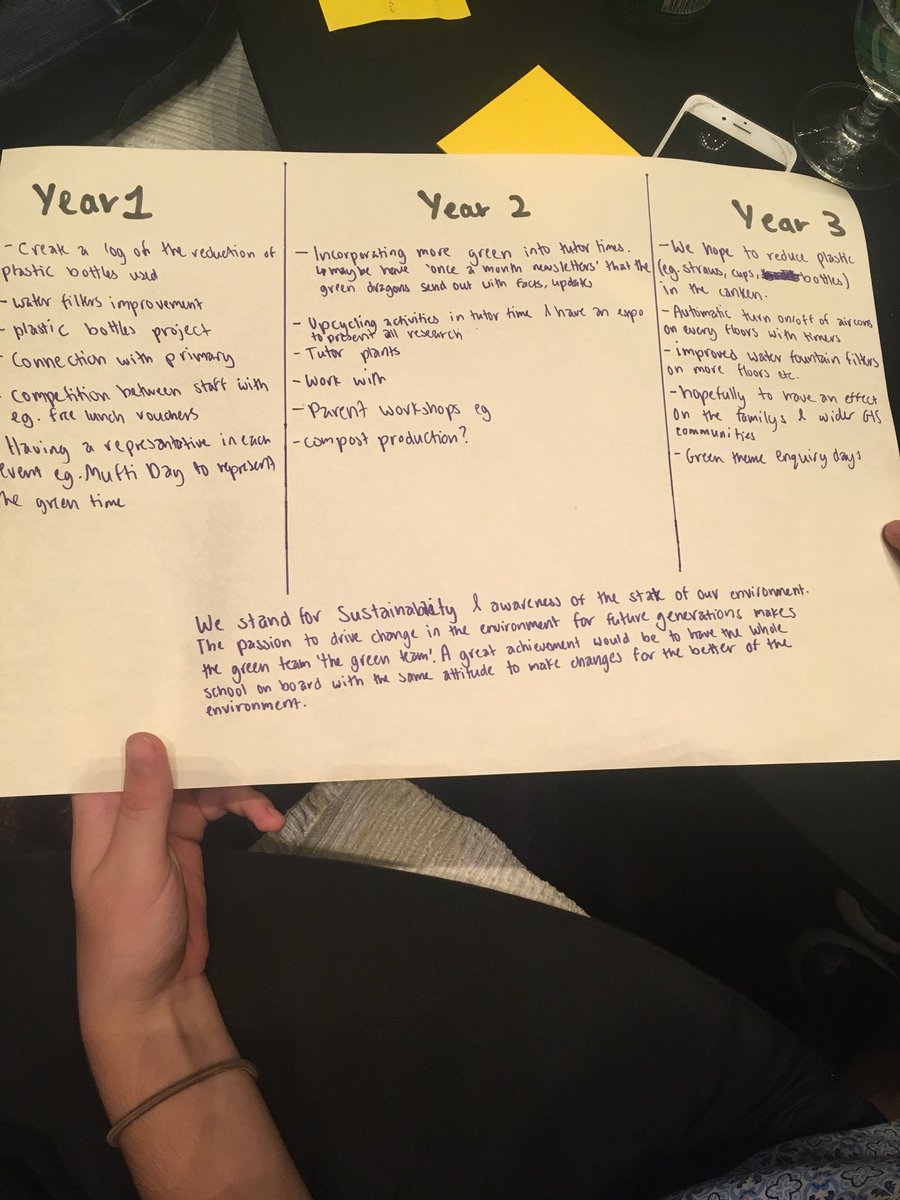 Year 1
- Creat a log of the reduction of
plastic bottles used
- water filters improvement
- plastic bottles project
- Connection with primary
- Competition between staff with
eg. free lunch vouchers
Having a representative in each
event eg. Mufti Day to represent
the green time
Year 2
- Incorporating more green into tutor times.
↳ maybe have 'once a month newsletters' that the
green dragons send out with facts, updates
- Upcycling activities in tutor time & have an expo
to present all research
- Tutor plants
- Work with
- Parent workshops eg
- compost production?
Year 3
- We hope to reduce plastic
(eg. straws, cups, bottles)
in the canteen.
- Automatic turn on/off of aircons
on every floors with timers
- improved water fountain filters
on more floors etc.
- hopefully to have an effect
on the familys & wider GIS
communities
- Green theme enquiry days
We stand for Sustainability & awareness of the state of our environment.
The passion to drive change in the environment for future generations makes
the green team 'the green team'. A great achievement would be to have the whole
school on board with the same attitude to make changes for the better of the
environment.